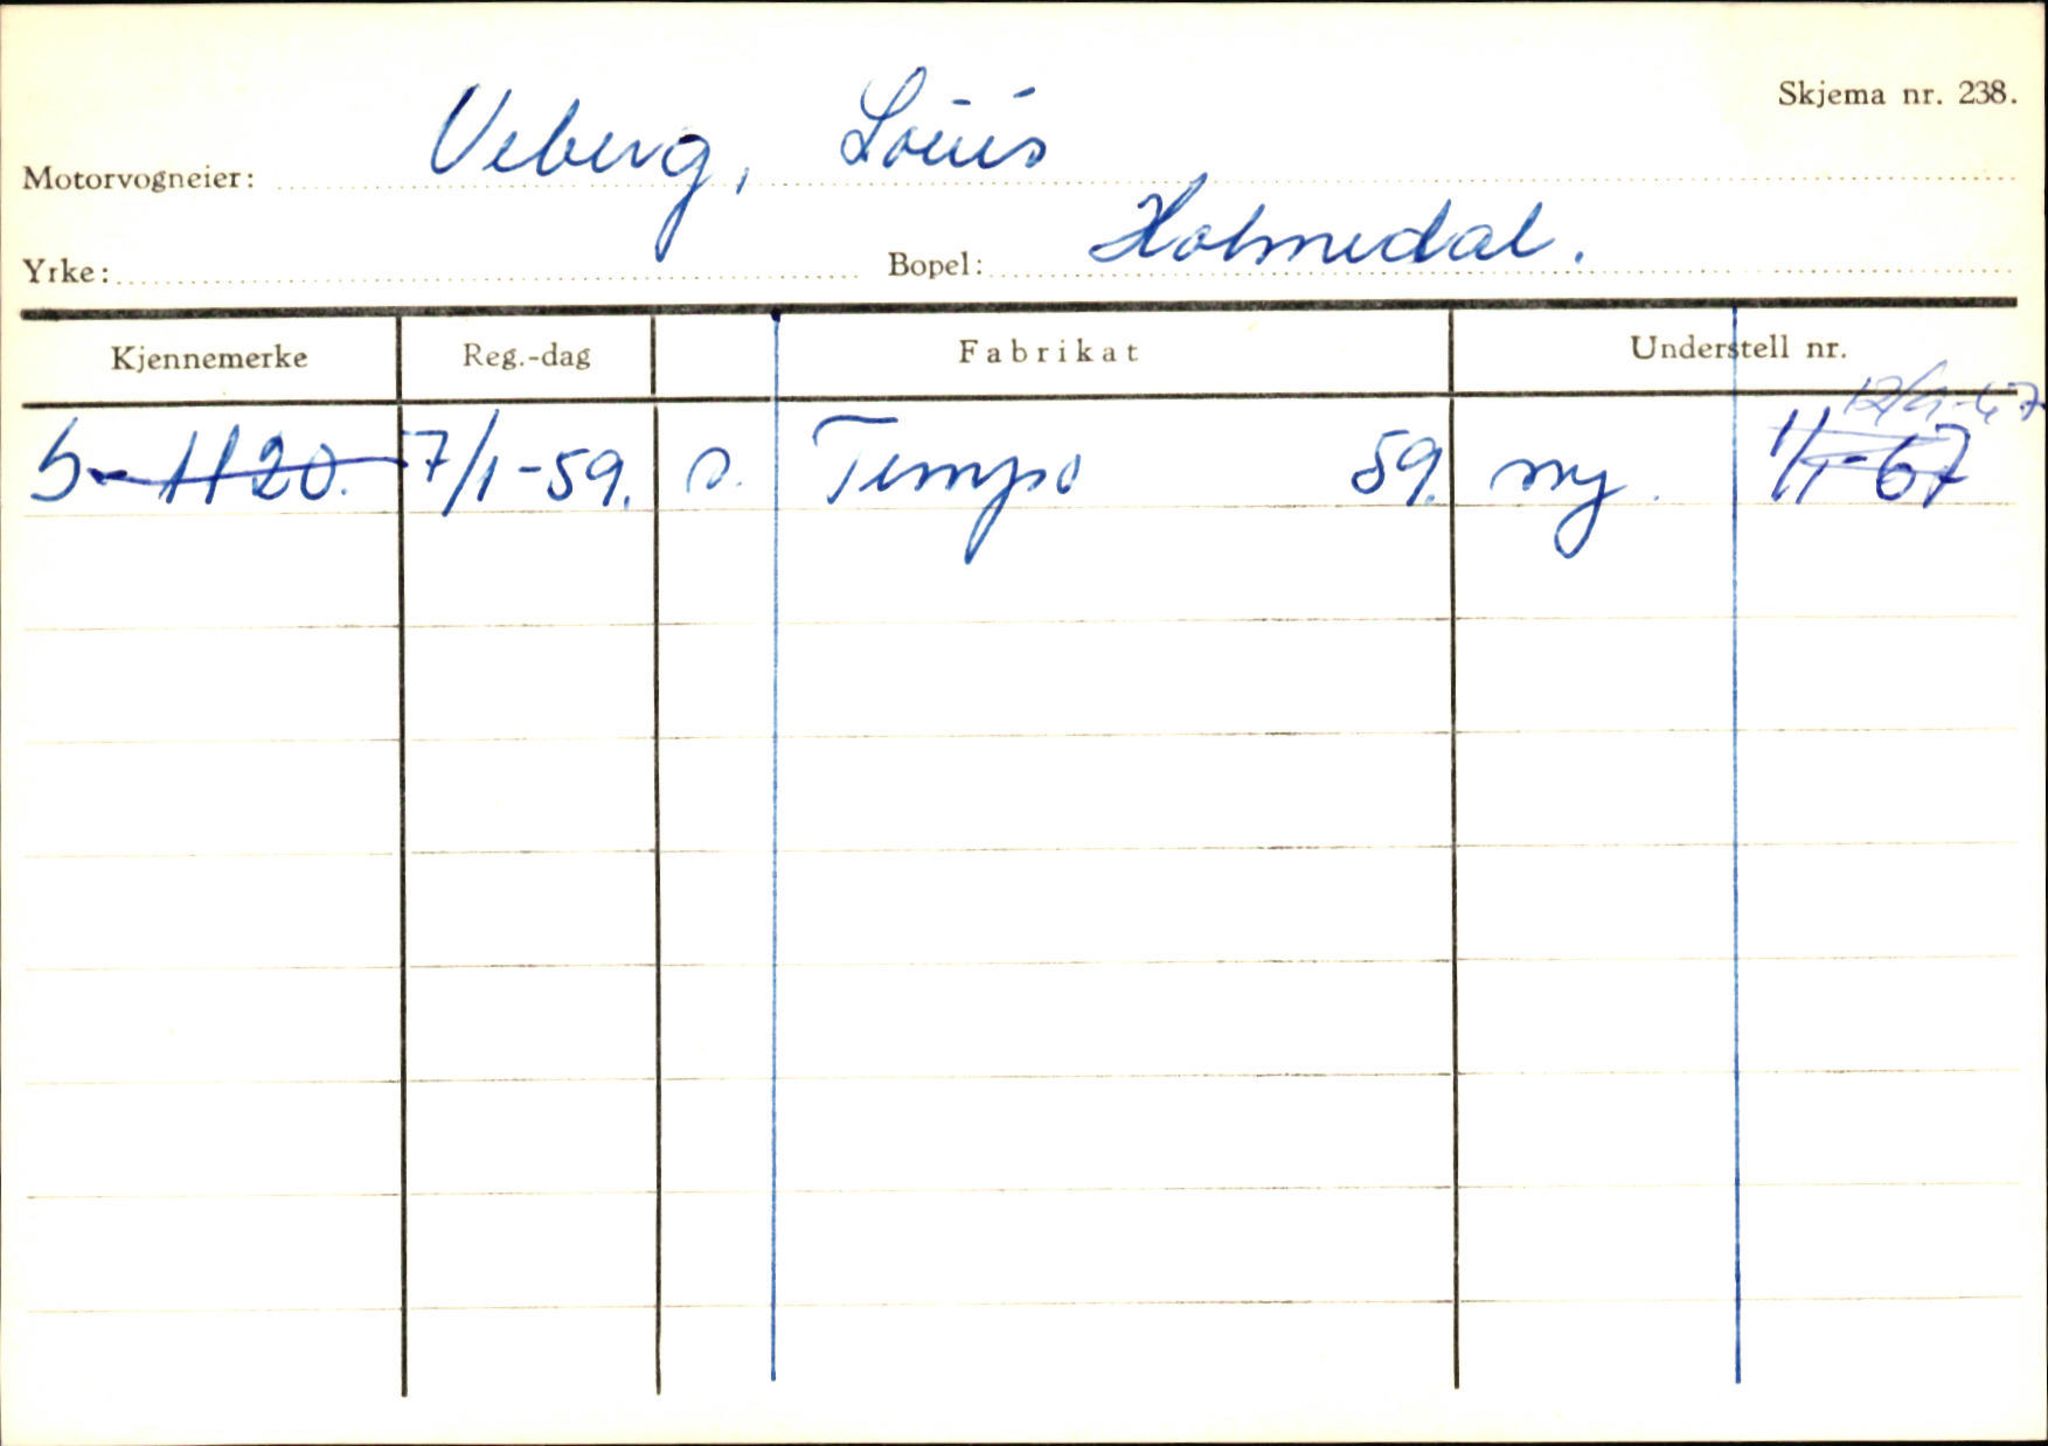 Skjema nr. 238.
Motorvogneier: Veberg, Louis
Yrke: Bopel: Holmedal.
Kjennemerke Reg.-dag Fabrikat Understell nr.
S-1120. 7/1-59. s. Tempo 59. ny. 1/1-67